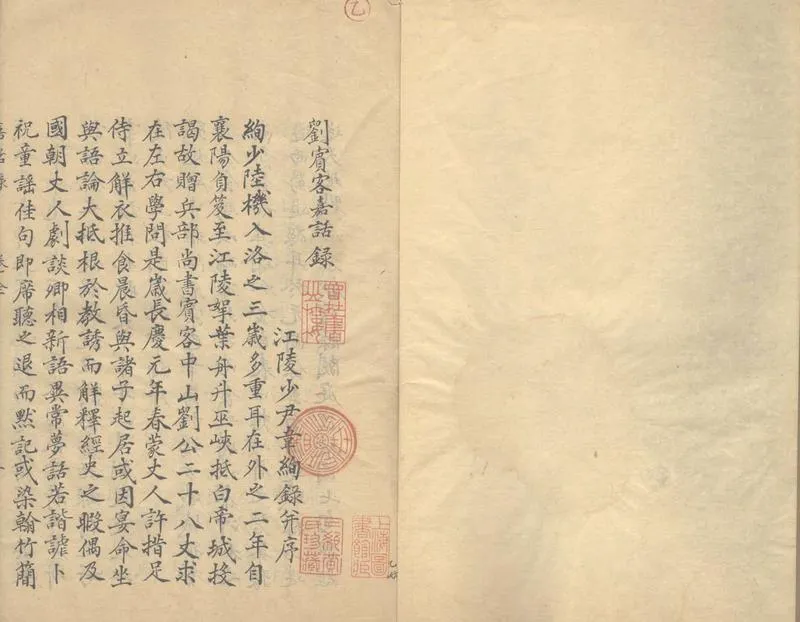 劉賓客嘉話録
江陵少尹韋絢録并序
絢少陸機入洛之三歲多重耳在外之二年自
襄陽負笈至江陵拏葉舟升巫峽抵白帝城投
謁故贈兵部尚書賓客中山劉公二十八丈求
在左右學問是歲長慶元年春蒙丈人許措足
侍立解衣推食晨昏與諸子起居或因宴命坐
與語論大抵根於教誘而解釋經史之暇偶及
國朝丈人劇談卿相新語異常夢話若諧謔卜
祝童謡佳句即席聽之退而默記或染翰竹簡